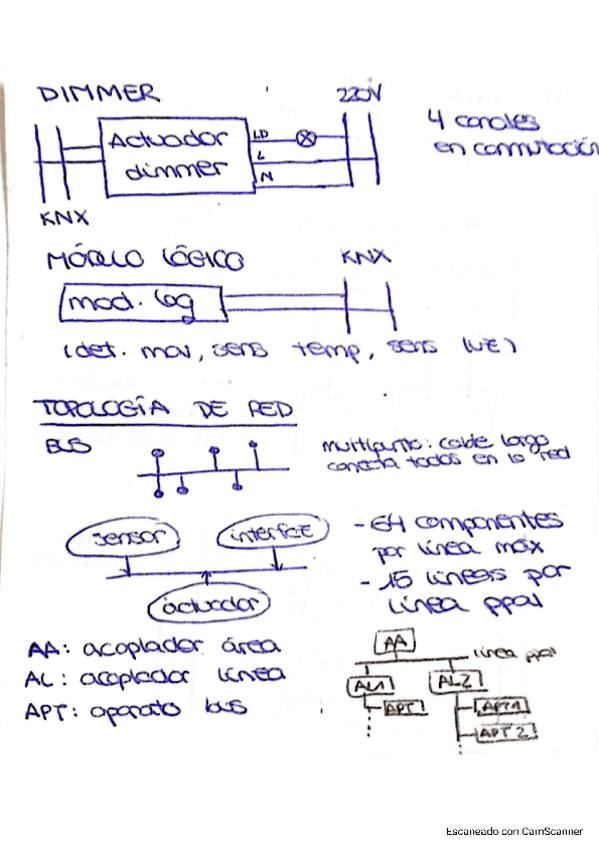 DIMMER
220V
Actuador
dimmer
LD
L
N
4 canales
en conmutación
KNX
MÓDULO LÓGICO
KNX
mod. log
(det. mov, sens temp, sens luz)
TOPOLOGÍA DE RED
BUS
multipunto: cable largo
conecta todos en la red
sensor
interfaz
actuador
- 64 componentes
por línea máx
- 15 líneas por
línea ppal
AA: acoplador área
AL: acoplador línea
APT: aparato bus
AA
línea ppal
AL1
AL2
APT1
APT1
APT2
Escaneado con CamScanner